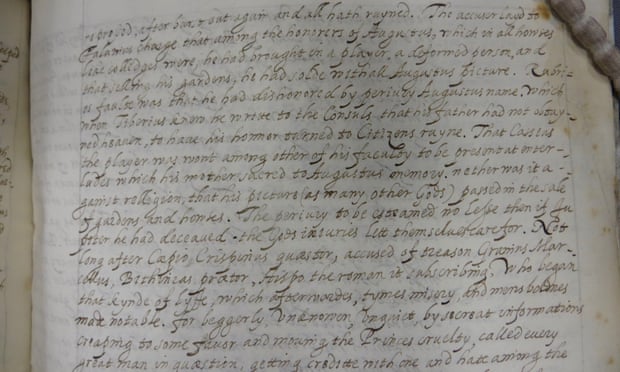 is probed, after burst out again and all hath rayned. The accuser layd to
Falanius charge that among the honorers of Augustus, which in all howses
like colledges were, he had brought in a player, a deformed person, and
that selling his gardens, he had solde withall Augustus picture. Rubri-
us faulte was that he had dishonored by periury Augustus name, which
when Tiberius knew he wrote to the Consuls, that his father had not obtay-
ned heaven, to have his honner turned to Citizens rayne. That Cassius
the player was wont among other of his faculty to be present at enter-
ludes which his mother sacred to Augustus memory. nether was it a-
gainst relligion, that his picture (as many other Gods) passed in the sale
of gardens and howses. The periury to be esteamed no lesse then if Ju
piter he had deceaved. the Gods iniuries lett themselves care for. Not
long after Cæpio Crispinus quæstor, accused of treason Granius Mar-
cellus, Bithineas prætor, Hispo the roman it subscribing. Who began
that kynde of lyffe, which afterwardes, tymes misery, and mens boldnes
made notable. for beggerly, unknowen, unquiet, by secreat informations
creaping to some favor and moving the Princes cruelty, called every
great man in quæstion, getting creditte with one and hate among the